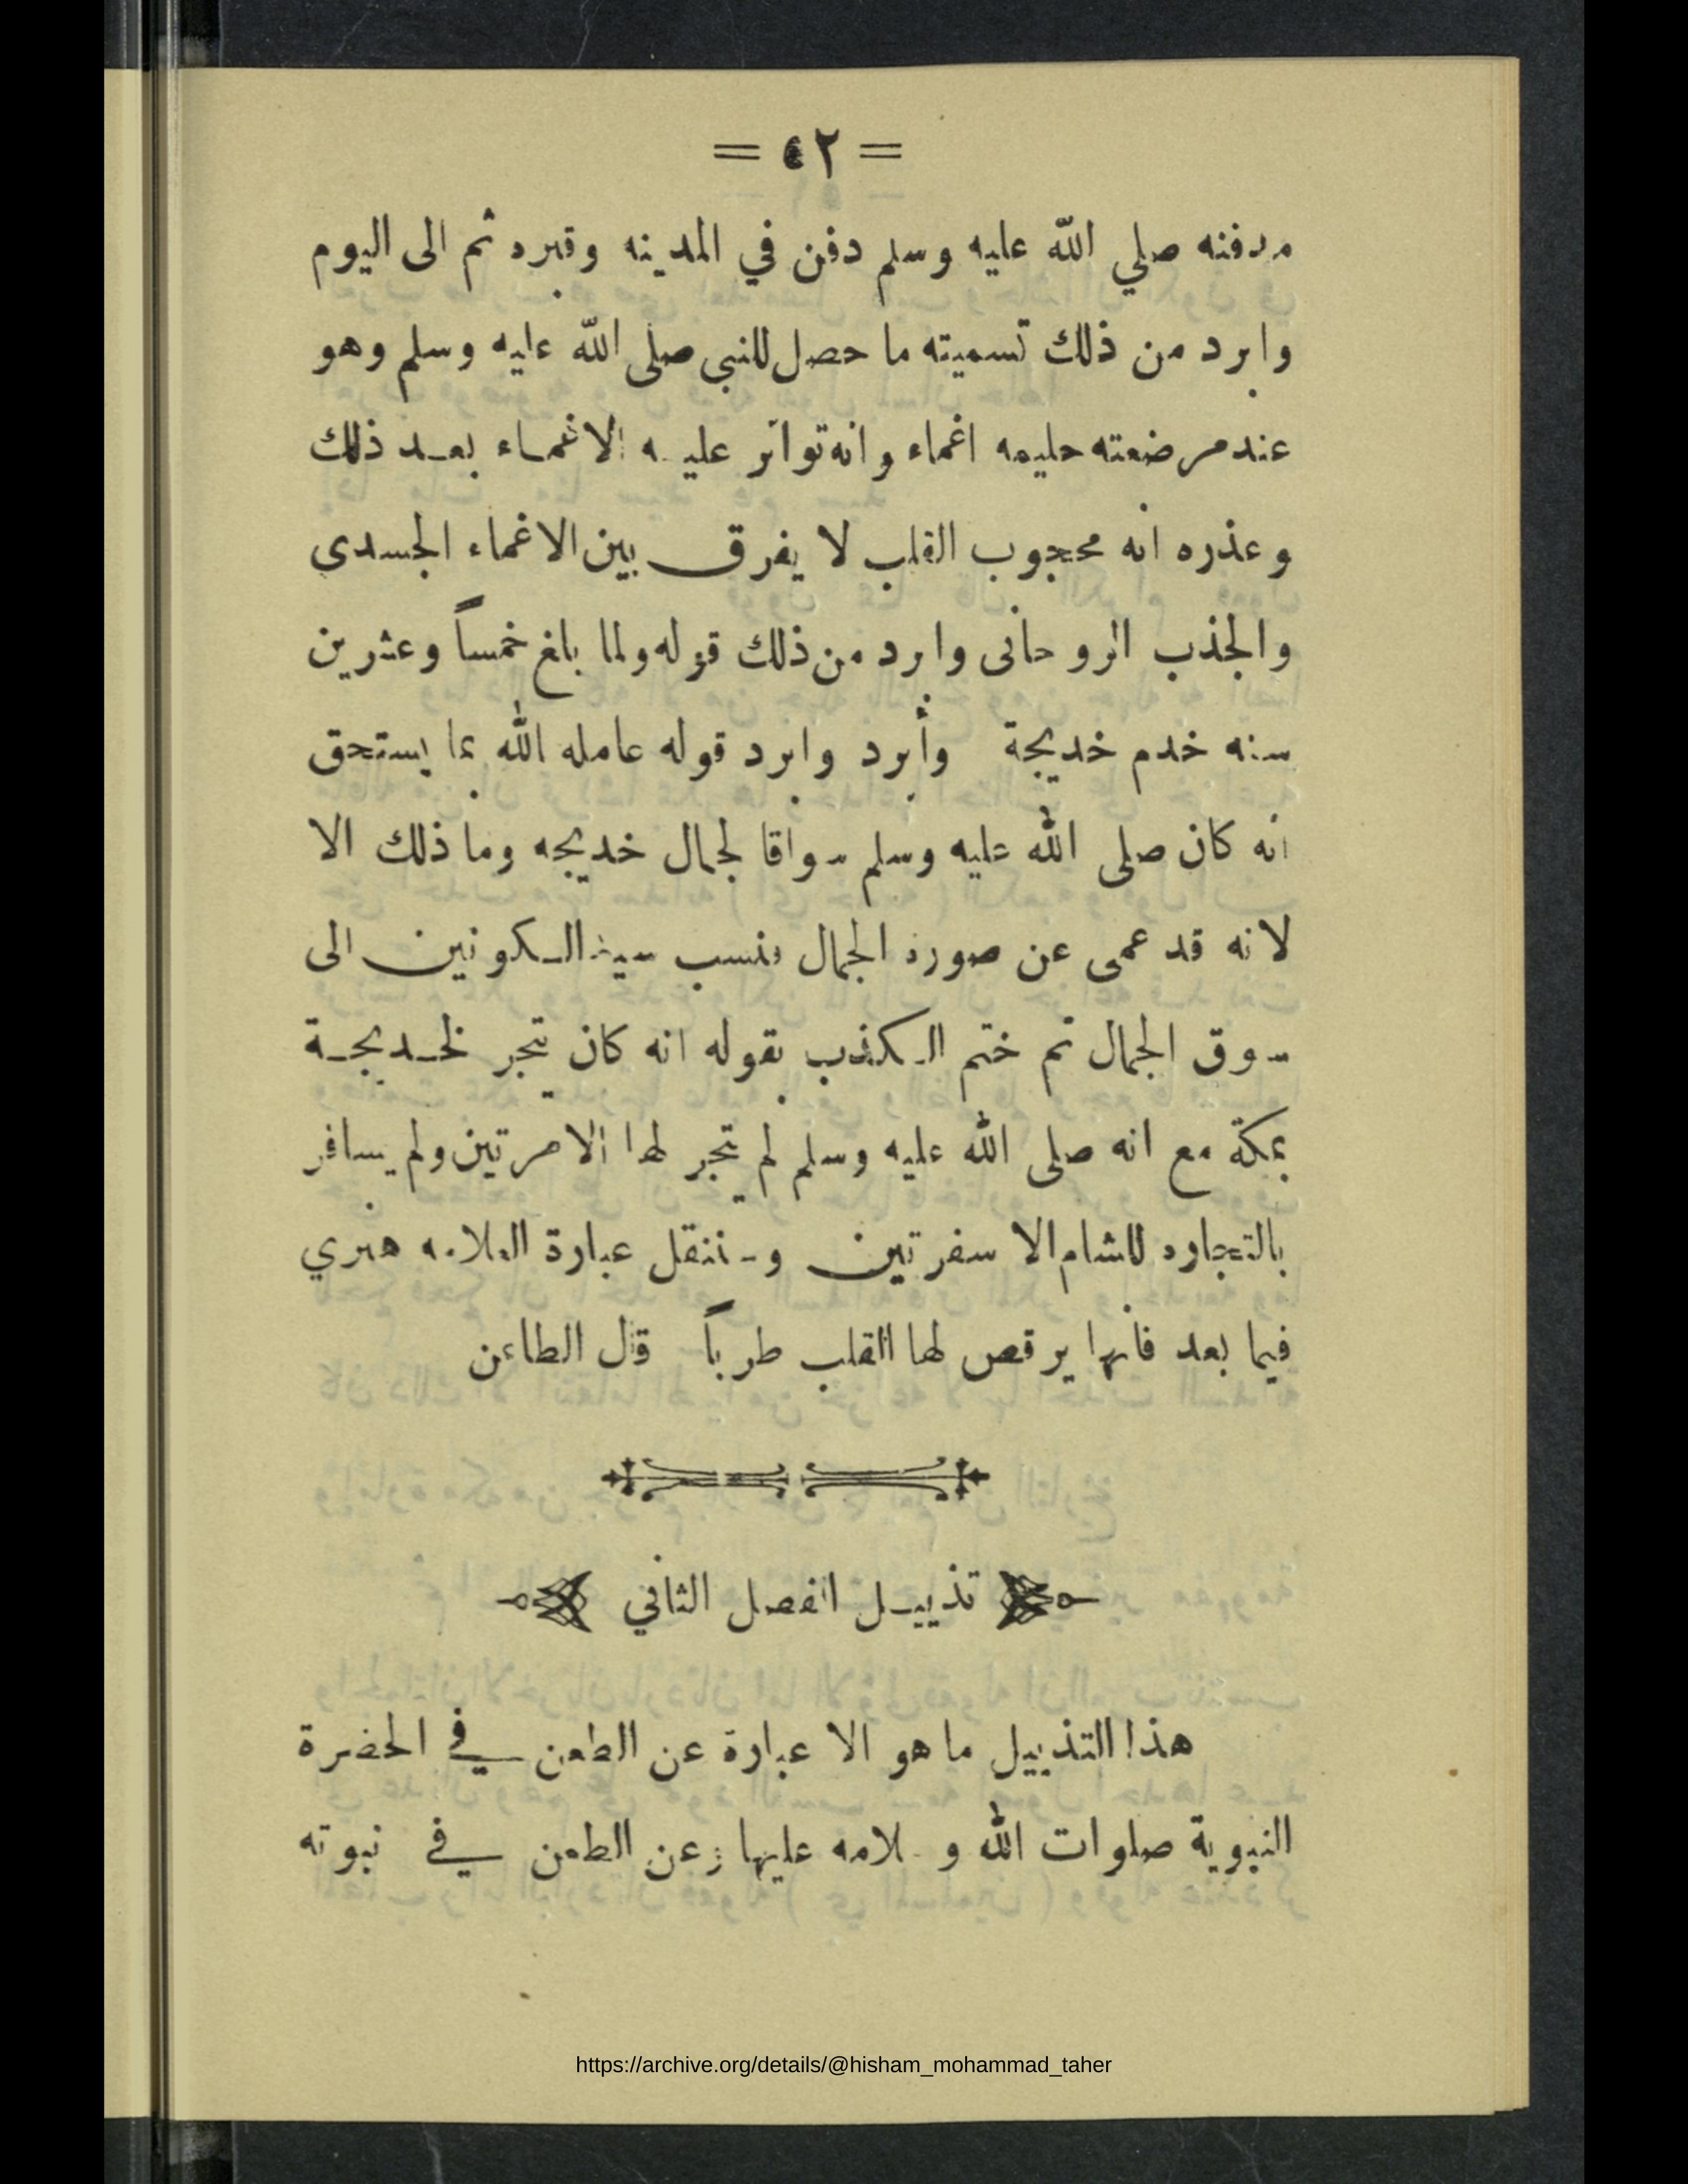 = ٤٢ =
مدفنه صلي الله عليه وسلم دفن في المدينه وقبره ثم الى اليوم
وابرد من ذلك تسميته ما حصل للنبي صلى الله عليه وسلم وهو
عند مرضعته حليمه اغماء وانه تواتر عليه الاغماء بعد ذلك
وعذره انه محجوب القلب لا يفرق بين الاغماء الجسدى
والجذب الروحانى وابرد من ذلك قوله ولما بلغ خمساً وعشرين
سنه خدم خديجة وأبرد وابرد قوله عامله الله بما يستحق
انه كان صلى الله عليه وسلم سواقا لجمال خديجه وما ذلك الا
لانه قد عمى عن صورة الجمال فنسب سيد الكونين الى
سوق الجمال ثم ختم الكذب بقوله انه كان يتجر لخديجة
بمكة مع انه صلى الله عليه وسلم لم يتجر لها الا مرتين ولم يسافر
بالتجاره للشام الا سفرتين وسننقل عبارة العلامه هنري
فيما بعد فانها يرقص لها القلب طرباً قال الطاعن
تذييل الفصل الثاني
هذا التذييل ما هو الا عبارة عن الطعن في الحضرة
النبوية صلوات الله وسلامه عليها وعن الطعن في نبوته
https://archive.org/details/@hisham_mohammad_taher